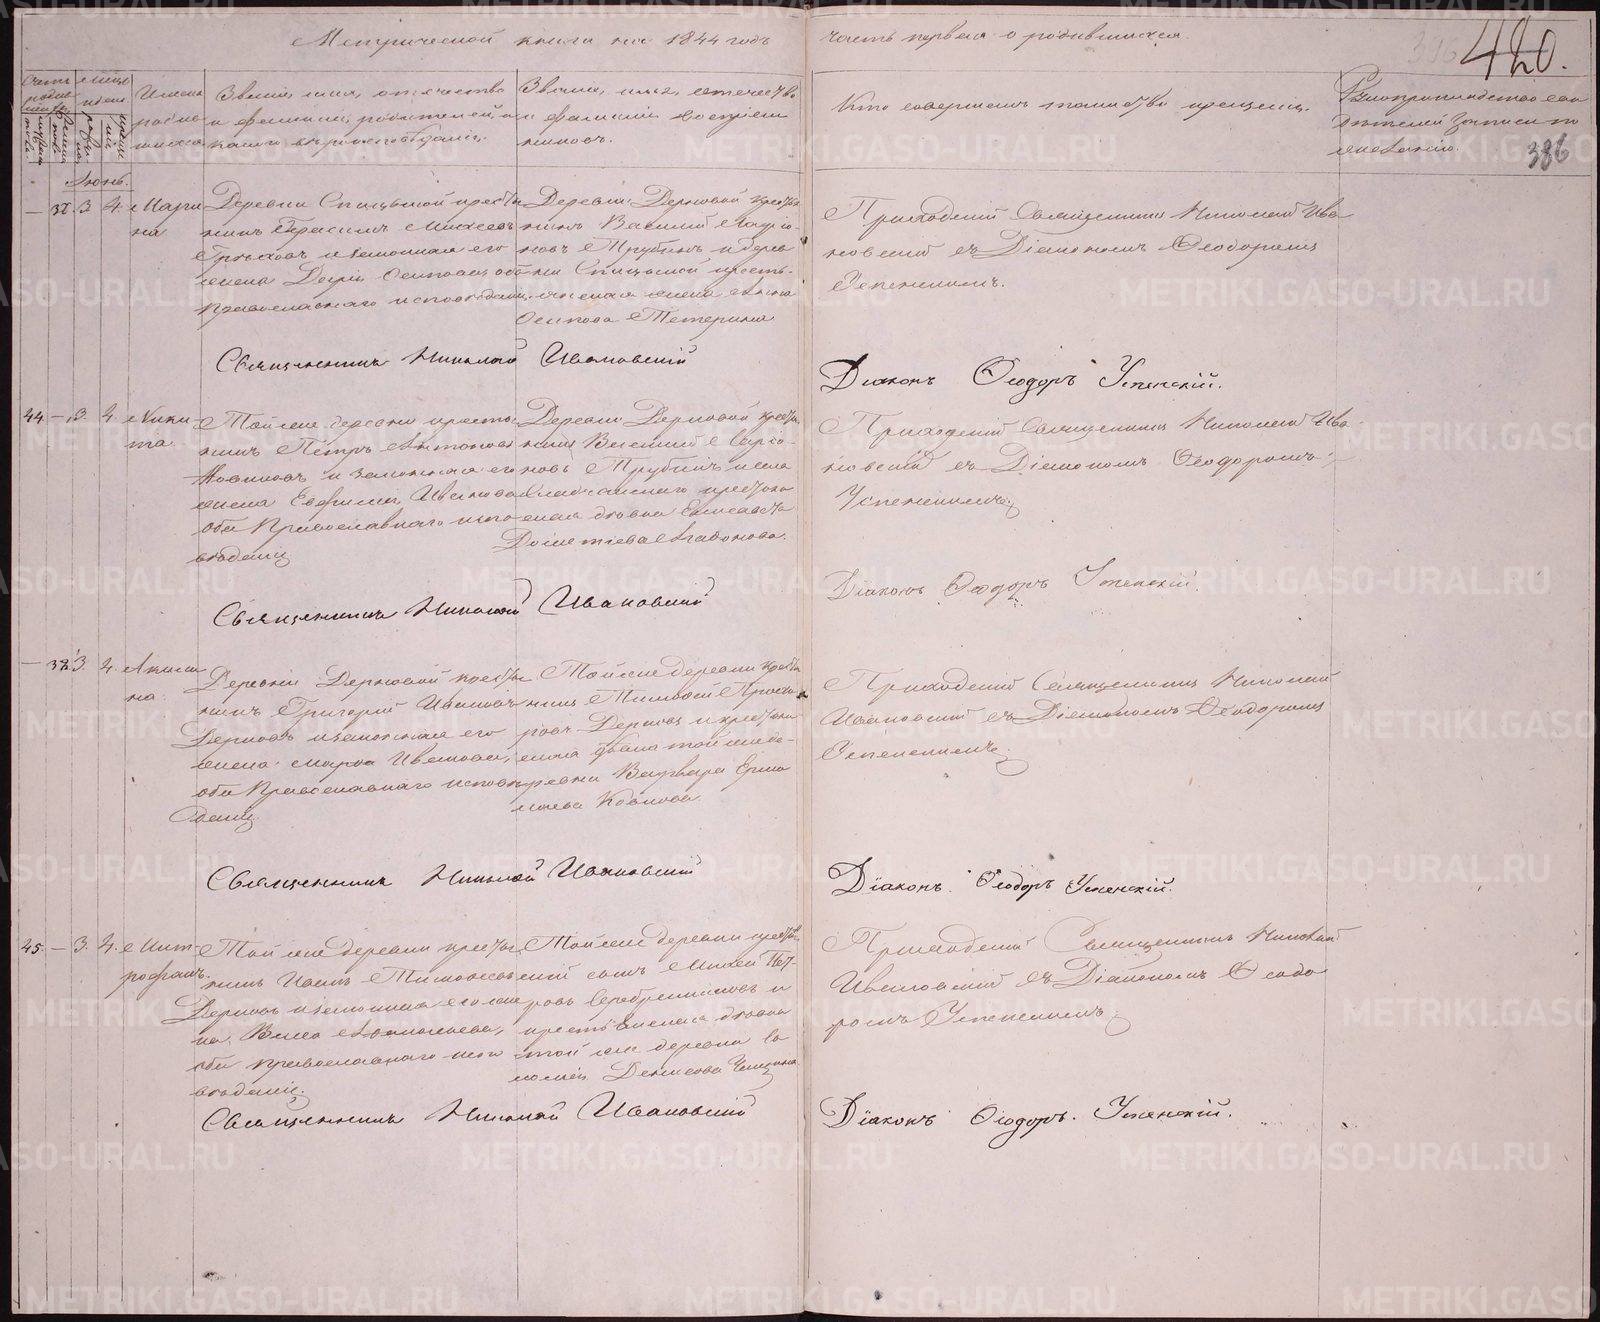 Метрической книги на 1844 годъ
часть первая о родившихся.
420.
386
Счетъ родив-
шихся
Мужеска
Женска
Мѣсяцъ и день
рожденія
крещенія
Имена
родив-
шихся
Званіе, имя, отчество
и фамилія родителей, и
какого вѣроисповѣданія.
Званіе, имя, отчество
и фамилія воспріем-
никовъ.
Кто совершалъ таинство крещенія.
Рукоприкладство сви-
дѣтелей записи по
желанію.
Іюнь.
— 37. 3 4. Мари
на
Деревни Спицыной кресть
нинъ Герасимъ Моисеевъ
и законная его
жена Дарія Осипова, оба
православнаго исповѣданія.
Деревни Дерновой кресть
нинъ Василій Ларіо-
новъ Трубинъ и дерев
ни Спицыной кресть-
янская жена Анна
Осипова Тетерина
Приходскій Священникъ Николай Ива
новскій съ Діакономъ Ѳеодоромъ
Успенскимъ.
Священникъ Николай Ивановскій
Діаконъ Ѳеодоръ Успенскій.
44 — 3. 4. Ники
та.
Той же деревни кресть
нинъ Петръ Антоновъ
и законная его
жена Евфимія Иванова
оба Православнаго испо
вѣданія
Деревни Дерновой кресть
нинъ Василій Ларіо-
новъ Трубинъ и села
крестьян
ская дѣвка Елисавета
Дометіева Агафонова.
Приходскій Священникъ Николай Ива
новскій съ Діакономъ Ѳеодоромъ
Успенскимъ.
Священникъ Николай Ивановскій
Діаконъ Ѳеодоръ Успенскій.
— 38. 3. 4. Акили
на.
Деревни Дерновой кресть
нинъ Григорій Ивановъ
Дерновъ и законная его
жена Марѳа Иванова,
оба Православнаго исповѣ
данія.
Той же деревни кресть
нинъ Тимоѳей
Дерновъ и крестьян
ская дѣвка той же де-
ревни Варвара Ермо
лаева
Приходскій Священникъ Николай
Ивановскій съ Діакономъ Ѳеодоромъ
Успенскимъ.
Священникъ Николай Ивановскій
Діаконъ Ѳеодоръ Успенскій.
45. — 3. 4. Мит-
рофанъ.
Той же деревни кресть
нинъ Иванъ Тимоѳеевъ
Дерновъ и законная его же
на
оба православнаго испо
вѣданія.
Той же деревни кресть
скій сынъ Михей Пет-
ровъ Серебренниковъ и
крестьянская дѣвка
той же деревни Со
ломія Денисова
Приходскій Священникъ Николай
Ивановскій съ Діакономъ Ѳеодо
ромъ Успенскимъ.
Священникъ Николай Ивановскій
Діаконъ Ѳеодоръ. Успенскій.
METRIKI.GASO-URAL.RU